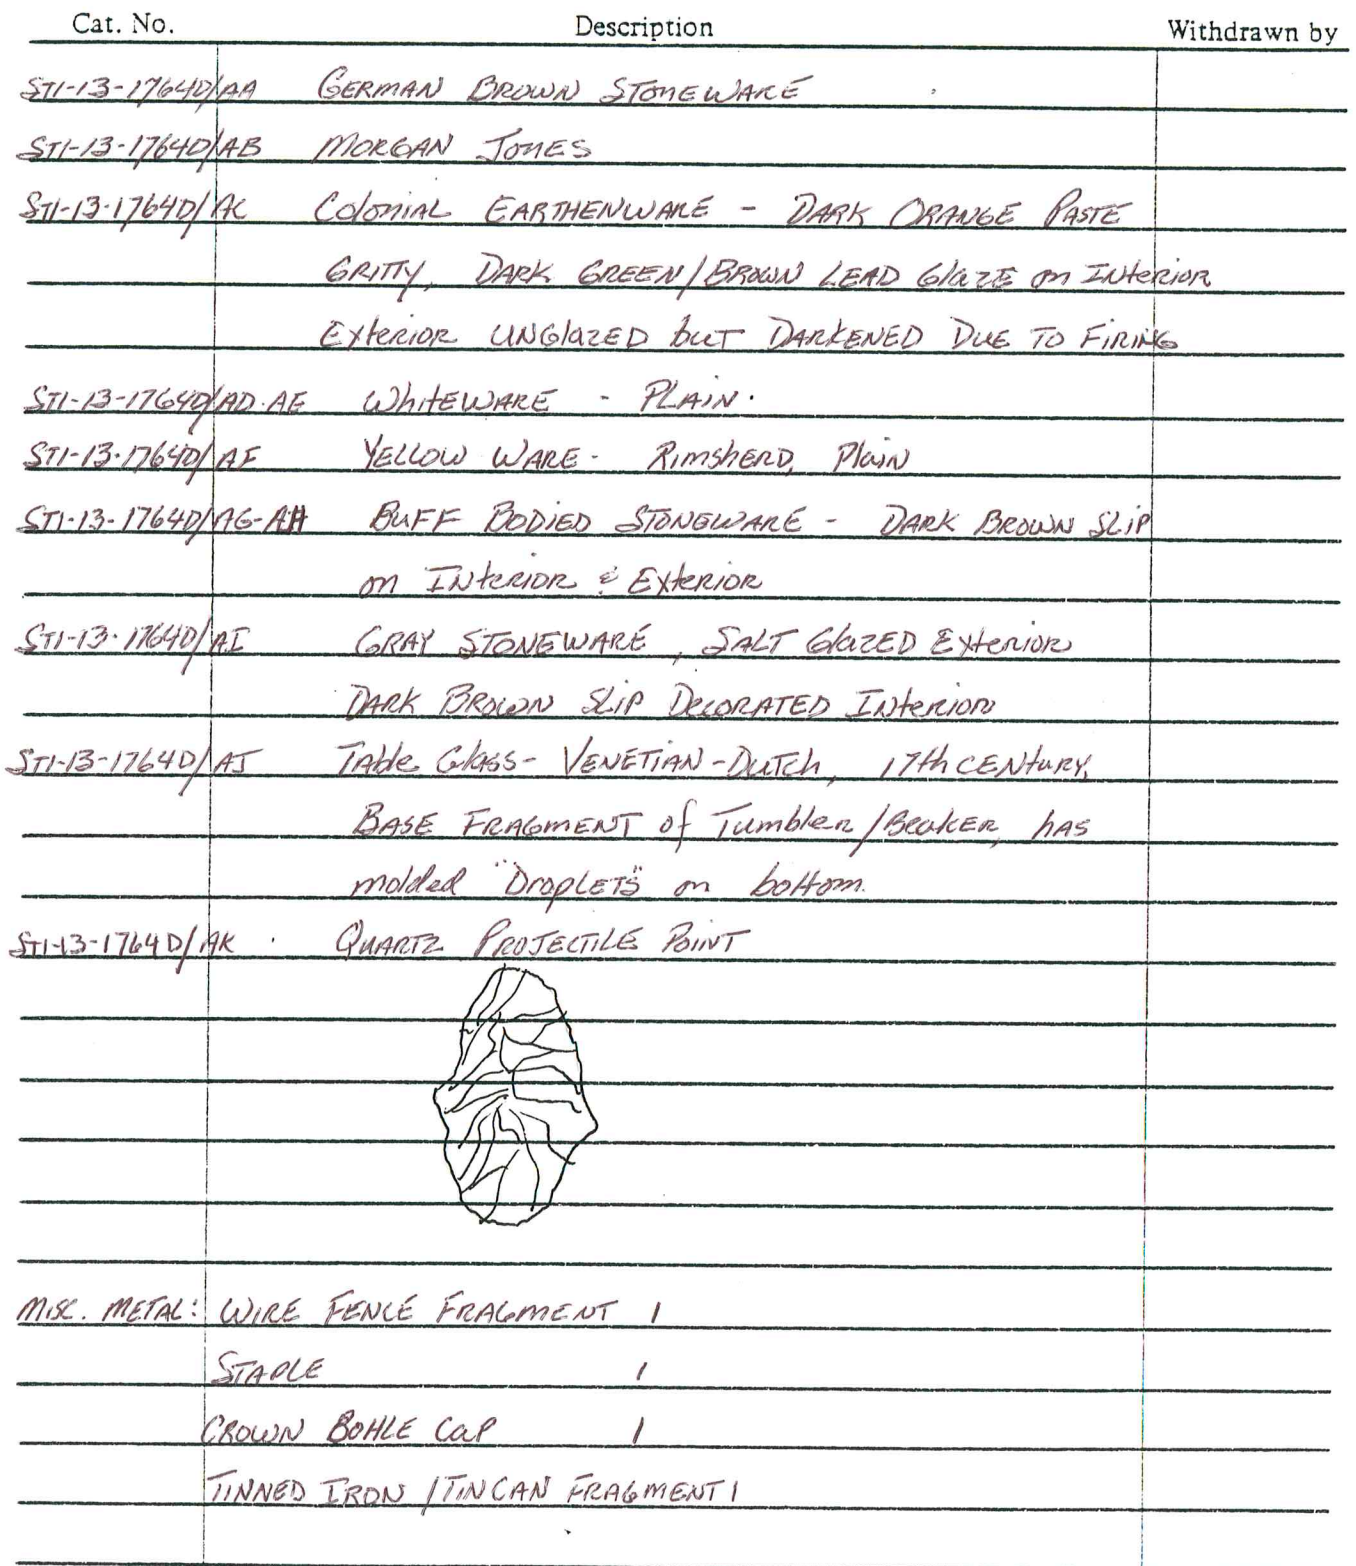 Cat. No. Description Withdrawn by
ST1-13-1764D/AA GERMAN BROWN STONEWARE
ST1-13-1764D/AB MORGAN JONES
ST1-13-1764D/AC COLONIAL EARTHENWARE - DARK ORANGE PASTE
GRITTY, DARK GREEN/BROWN LEAD GlAZE on INterior
Exterior UNGlAZED but DARKENED DUE TO FIRING
ST1-13-1764D/AD-AE WhitEWARE - PLAIN.
ST1-13-1764D/AF YELLOW WARE - RimshERD, Plain
ST1-13-1764D/AG-AH BUFF BODIED STONEWARE - DARK BROWN SLiP
on INterior & Exterior
ST1-13-1764D/AI GRAY STONEWARE, SALT GlAZED Exterior
DARK BROWN SLiP DECORATED INterior
ST1-13-1764D/AJ Table Glass - VENETIAN-Dutch, 17th CENtury,
BASE FRAGMENT of Tumbler/BEAKER, hAS
molded "DropLETS" on bottom.
ST1-13-1764D/AK QUARTZ PROJECTILE POINT
MISC. METAL: WIRE FENCE FRAGMENT 1
STAPLE 1
CROWN BOttLE CaP 1
TINNED IRON /TIN CAN FRAGMENT 1